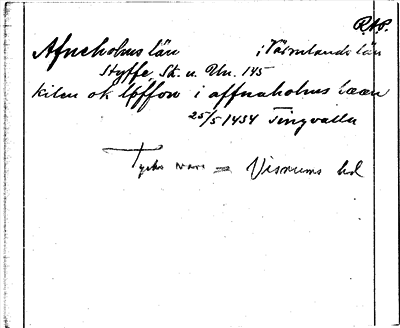 R.A.P.
Afneholms län i Värmlands län
Styffe, Sk. u. Un. 145
kilen ok löffon i affnaholms læn
25/5 1434 Tingvalla
Tycks vara = Visnums hd